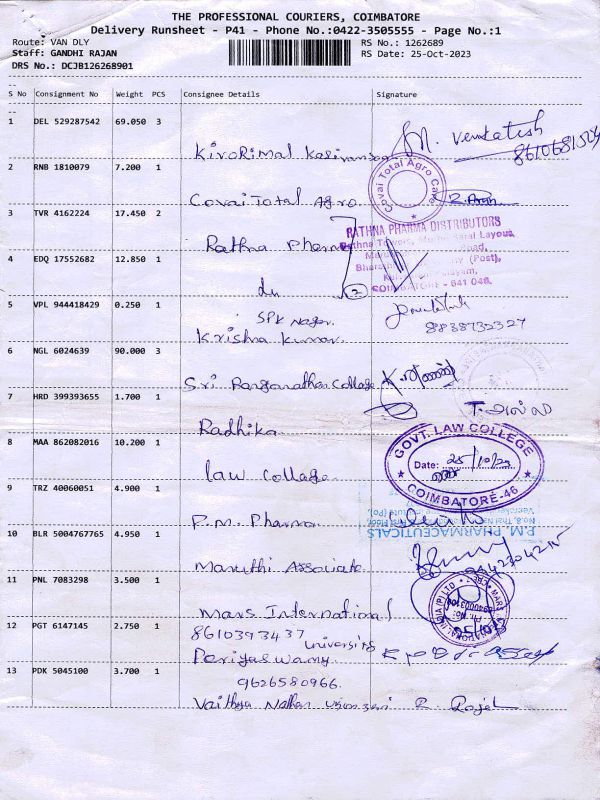 THE PROFESSIONAL COURIERS, COIMBATORE
Delivery Runsheet - P41 - Phone No.:0422-3505555 - Page No.:1
Route: VAN DLY RS No.: 1262689
Staff: GANDHI RAJAN RS Date: 25-Oct-2023
DRS No.: DCJB126268901
S No Consignment No Weight PCS Consignee Details Signature
1 DEL 529287542 69.050 3
Kirorimal venkatesh
2 RNB 1810079 7.200 1
Covai Total Agro Covai Total Agro Care
3 TVR 4162224 17.450 2
Rathna Pharma RATHNA PHARMA DISTRIBUTORS
4 EDQ 17552682 12.850 1
du 2 COIMBATORE - 641 048.
5 VPL 944418429 0.250 1
SPK Nagar 8838732327
Krishna Kumar
6 NGL 6024639 90.000 3
Sri Ranganathar College
7 HRD 399393655 1.700 1
Radhika
8 MAA 862082016 10.200 1
GOVT. LAW COLLEGE
Date: 25/10/23
COIMBATORE-46
Law College
9 TRZ 40060051 4.900 1
P.M. Pharma P.M. PHARMACEUTICALS
10 BLR 5004767765 4.950 1
Maruthi Associate
11 PNL 7083298 3.500 1
Mars International
12 PGT 6147145 2.750 1
8610393437 university
Periyaswamy
13 PDK 5045100 3.700 1
9626580966.
Vaithya Nathan R. Rajesh